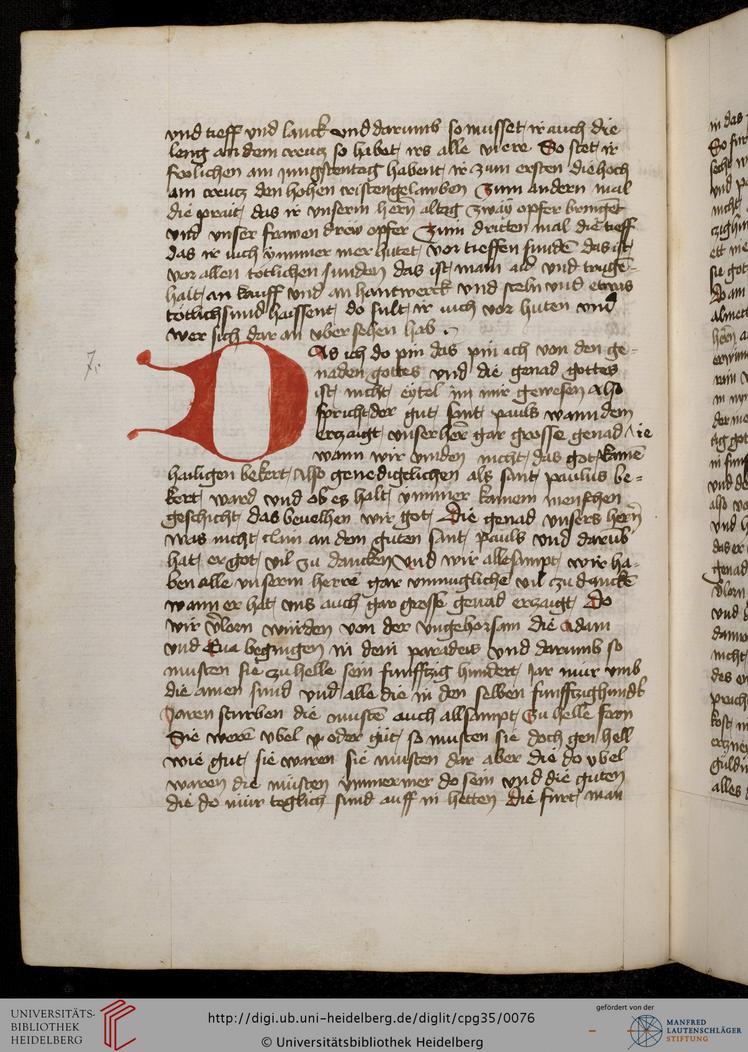 vnd tieff vnd lanck vnd darumb so musset ir auch die
leng an dem creutz so habet irs alle viere So stet ir
frolichen am jungstentag habent ir zum ersten die hoch
am creutz den hohen cristengelauben Zum andern mal
die prait das ir vnserm hern alteg zway opfer bringet
vnd vnser frawen drew opfer Zum dritten mal die tieff
das ir uch ymmer mer hutet vor tieffen sunde das ist
vor allen totlichen sunden das ist main aid vnd truge-
hait an kauff vnd an hantwerck vnd steln vnd etwas
totlich sund haissent do sult ir uch vor huten vnd
wer sich dar an vbersehen hab
DAs ich do pin das pin ich von den ge-
naden gottes vnd die genad gottes
ist nicht eytel jn mir gewesen Also
spricht der gut sant pauls wann dem
erzaigt vnser here gar grosse genad ie
wann wir vinden nicht das got kaine
hailigen bekert also genediglichen als sant paulus be-
kert ward vnd ob es halt ymmer kainem menschen
geschicht das beuelhen wir got Die genad vnsers hern
was nicht clain an dem guten sant pauls vnd darub
hat er got vil zu dancken vnd wir allesampt wir ha-
ben alle vnserm herre gar vnmugliche vil czu dancke
wann er hat vns auch gar grosse genad erzaigt Do
wir vlorn wurden von der vngehorsam die adam
vnd Eua begingen in dem paradeis vnd darumb so
musten sie zu helle sein funffzig hundert jar nur vmb
die ainen sund vnd alle die in den selben funffzighundt
Jaren sturben die muste auch allsampt Zu helle farn
Sie were vbel oder gut so musten sie doch gen hell
wie gut sie waren sie musten dar aber die do vbel
waren die musten ymmermer do sein vnd die guten
die do nur teglich sund auff in hetten Die furt man
7.
in das
So fur
vnd
nicht
sie got
Do am
hern
vnd
also
vnd
das er
genad
vlorn
vnd
nicht
des
alles
UNIVERSITÄTS-
BIBLIOTHEK
HEIDELBERG
http://digi.ub.uni-heidelberg.de/diglit/cpg35/0076
© Universitätsbibliothek Heidelberg
gefördert von der
MANFRED
LAUTENSCHLÄGER
STIFTUNG